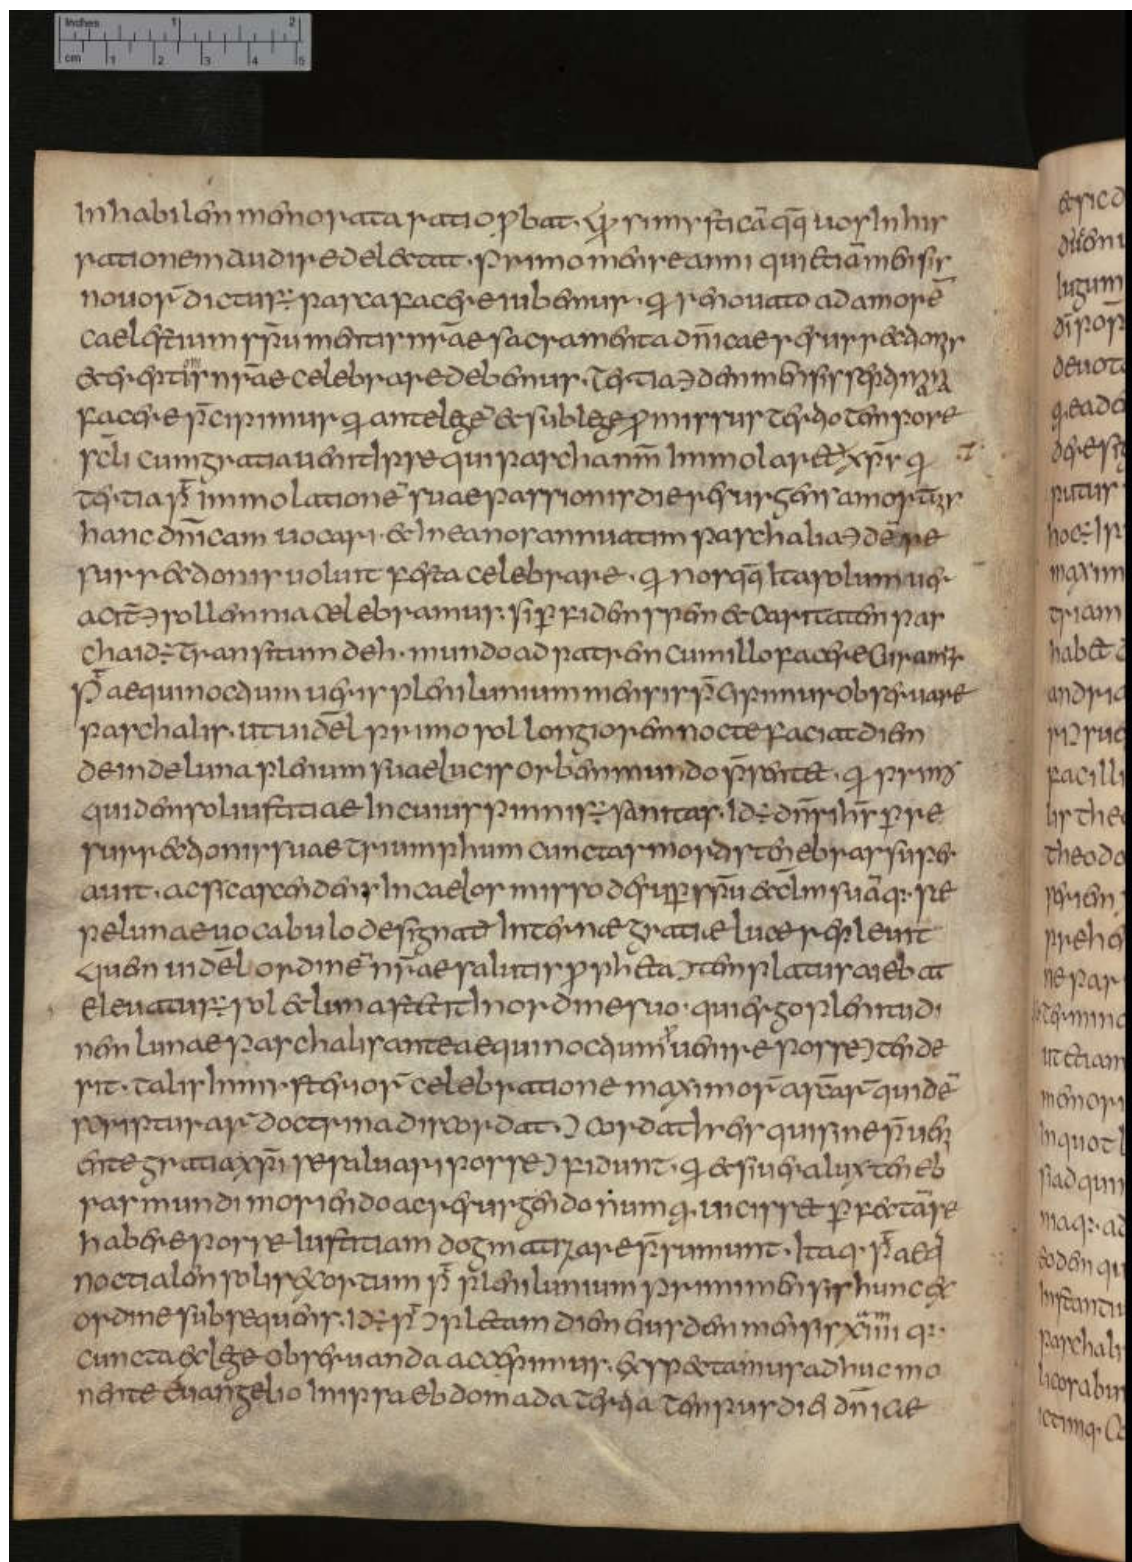 inhabilem minorata ratio ꝓbat. Ꝓ si mysticā qq̄ uos in his
rationem audire delectat. primo mense anni qui etiā mensis
nouoꝝ dictus ÷ pasca facere iubemur. qꝫ renouato ad amorē
caelestium sp̄u mentis nr̄ae sacramenta dn̄icae resurrectionis
et ereptionis nr̄ae celebrare debemus. tertia ɔdem mensis septimana
facere p̄cipimur qꝫ ante lege et sub lege ꝓmissus tertio tempore
sc̄li cum gratia uenit ipse qui pascha nr̄m immolaretur xp̄s qꝫ
tertia post immolatione suae passionis die resurgens a mortuis
hanc dn̄icam uocari. et in ea nos annuatim paschalia ɔdē re
surrectionis uoluit festa celebrare. qꝫ nos qq̄ ita solum uer
aciter ɔ sollemnia celebramus. si ꝑ fidem spem et caritatem pas
cha id ÷ transitum de h. mundo ad patrem cum illo facere curamus
post aequinoctium ueris plenilunium mensis p̄cipimur obseruare
paschalis. ut uidel primo sol longiorem nocte faciat diem
deinde luna plenum suae lucis orbem mundo p̄sentet. qꝫ primus
quidem sol iustitiae in cuius pinnis ÷ sanitas. id ÷ dn̄s ihs ꝑ re
surrectionis suae triumphum cunctas mortis tenebras supe
auit. ac sic ascendens in caelos misso desuper sp̄u eccl̄m suāqꝫ se
pe lunae uocabulo designatē internae gratiae luce repleuit
Quem uidel ordinē nr̄ae salutis ꝓpheta ɔtemplatus aiebat
eleuatus ÷ sol et luna stetit in ordine suo. qui ergo plenitudi
nem lunae paschalis ante aequinoctium uenire posse ɔtende
rit. talis in mysterioꝝ celebratione maximoꝝ a sc̄aꝝ quidē
scripturaꝝ doctrina discordat. ɔcordat h eis qui sine p̄ueni
ente gratia xp̄i se saluari posse ɔfidunt. qꝫ etsi uera lux teneb
ras mundi moriendo ac resurgendo numqꝫ uicisset ꝑfectā se
habere posse iustitiam dogmatizare p̄sumunt. itaqꝫ post aeq
noctialem solis exortum post plenilunium primi mensis hunc ex
ordine subsequens. id ÷ post ɔpletam diem eiusdem mensis xiiii qꝫ
cuncta ex lege obseruanda accepimus. expectamus adhuc mo
nente euangelio in ipsa ebdomada tertia tempus diei dn̄icae